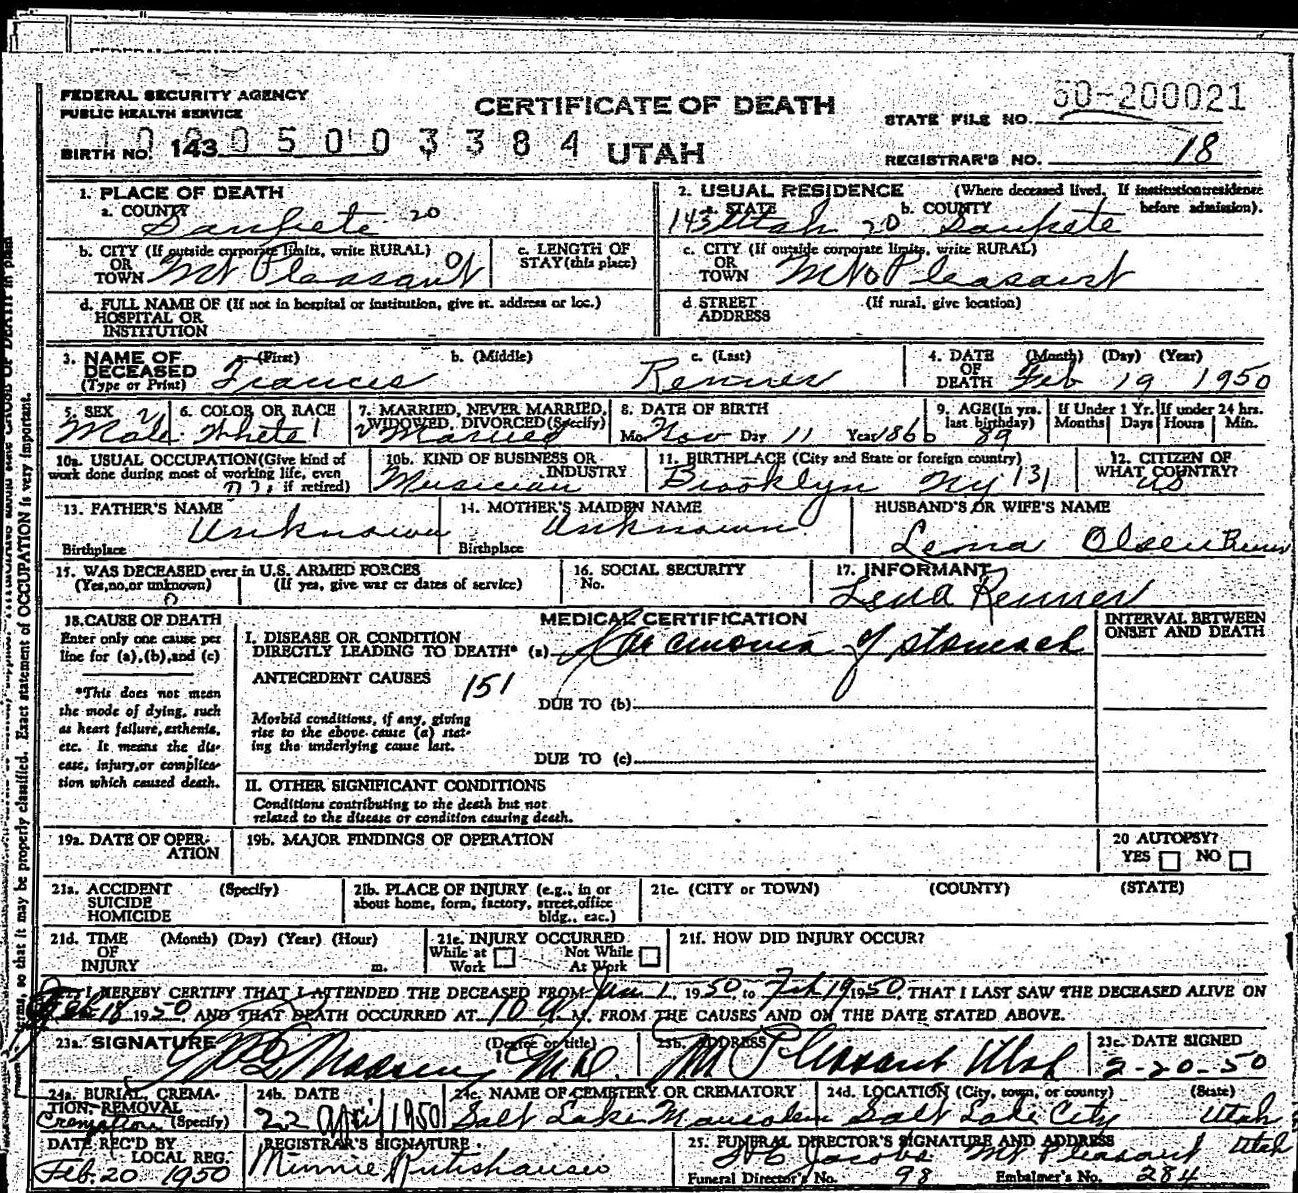 FEDERAL SECURITY AGENCY
PUBLIC HEALTH SERVICE
CERTIFICATE OF DEATH
UTAH
STATE FILE NO. 50-200021
BIRTH NO. 143 0 5 0 0 3 3 8 4
REGISTRAR'S NO. 18
1. PLACE OF DEATH
a. COUNTY Sanpete 20
2. USUAL RESIDENCE (Where deceased lived. If institution: residence before admission).
a. STATE 143 Utah 20 b. COUNTY Sanpete
b. CITY (If outside corporate limits, write RURAL) OR TOWN Mt Pleasant 01
c. LENGTH OF STAY (this place)
c. CITY (If outside corporate limits, write RURAL) OR TOWN Mt Pleasant
d. FULL NAME OF (If not in hospital or institution, give st. address or loc.) HOSPITAL OR INSTITUTION
d. STREET ADDRESS (If rural, give location)
3. NAME OF DECEASED (Type or Print)
a. (First) Frances b. (Middle) c. (Last) Renner
4. DATE OF DEATH (Month) (Day) (Year) Feb 19 1950
5. SEX Male
6. COLOR OR RACE White
7. MARRIED, NEVER MARRIED, WIDOWED, DIVORCED (Specify) Married
8. DATE OF BIRTH Mo. Nov Day 11 Year 1860
9. AGE (In yrs. last birthday) 89
If Under 1 Yr. Months Days
If under 24 hrs. Hours Min.
10a. USUAL OCCUPATION (Give kind of work done during most of working life, even if retired)
10b. KIND OF BUSINESS OR INDUSTRY Musician
11. BIRTHPLACE (City and State or foreign country) Brooklyn Ny 131
12. CITIZEN OF WHAT COUNTRY? US
13. FATHER'S NAME Unknown
Birthplace
14. MOTHER'S MAIDEN NAME Unknown
Birthplace
HUSBAND'S OR WIFE'S NAME
Lena Olsen Renner
15. WAS DECEASED ever in U.S. ARMED FORCES
(Yes, no, or unknown) (If yes, give war or dates of service)
16. SOCIAL SECURITY No.
17. INFORMANT
Lena Renner
18. CAUSE OF DEATH
Enter only one cause per line for (a), (b), and (c)
*This does not mean the mode of dying, such as heart failure, asthenia, etc. It means the disease, injury, or complication which caused death.
MEDICAL CERTIFICATION
I. DISEASE OR CONDITION DIRECTLY LEADING TO DEATH* (a) Carcinoma of stomach
ANTECEDENT CAUSES 151
DUE TO (b)
Morbid conditions, if any, giving rise to the above cause (a) stating the underlying cause last.
DUE TO (c)
II. OTHER SIGNIFICANT CONDITIONS
Conditions contributing to the death but not related to the disease or condition causing death.
INTERVAL BETWEEN ONSET AND DEATH
19a. DATE OF OPERATION
19b. MAJOR FINDINGS OF OPERATION
20 AUTOPSY?
YES NO
21a. ACCIDENT SUICIDE HOMICIDE (Specify)
21b. PLACE OF INJURY (e.g., in or about home, form, factory, street, office bldg., eac.)
21c. (CITY or TOWN) (COUNTY) (STATE)
21d. TIME OF INJURY (Month) (Day) (Year) (Hour) m.
21e. INJURY OCCURRED
While at Work Not While At Work
21f. HOW DID INJURY OCCUR?
I HEREBY CERTIFY THAT I ATTENDED THE DECEASED FROM Jan 1, 1950, to Feb 19 1950, THAT I LAST SAW THE DECEASED ALIVE ON
Feb 18 1950, AND THAT DEATH OCCURRED AT 10 a M. FROM THE CAUSES AND ON THE DATE STATED ABOVE.
23a. SIGNATURE (Degree or title)
Madsen M.D.
23b. ADDRESS
Mt Pleasant Utah
23c. DATE SIGNED
2-20-50
24a. BURIAL, CREMATION, REMOVAL (Specify) Cremation
24b. DATE
22 April 1950
24c. NAME OF CEMETERY OR CREMATORY
Salt Lake Mausoleum
24d. LOCATION (City, town, or county) (State)
Salt Lake City Utah
DATE REC'D BY LOCAL REG.
Feb. 20 1950
REGISTRAR'S SIGNATURE
Minnie Rutishauser
25. FUNERAL DIRECTOR'S SIGNATURE AND ADDRESS
Jacobs Mt Pleasant Utah
Funeral Director's No. 98 Embalmer's No. 284
terms, so that it may be properly classified. Exact statement of OCCUPATION is very important.